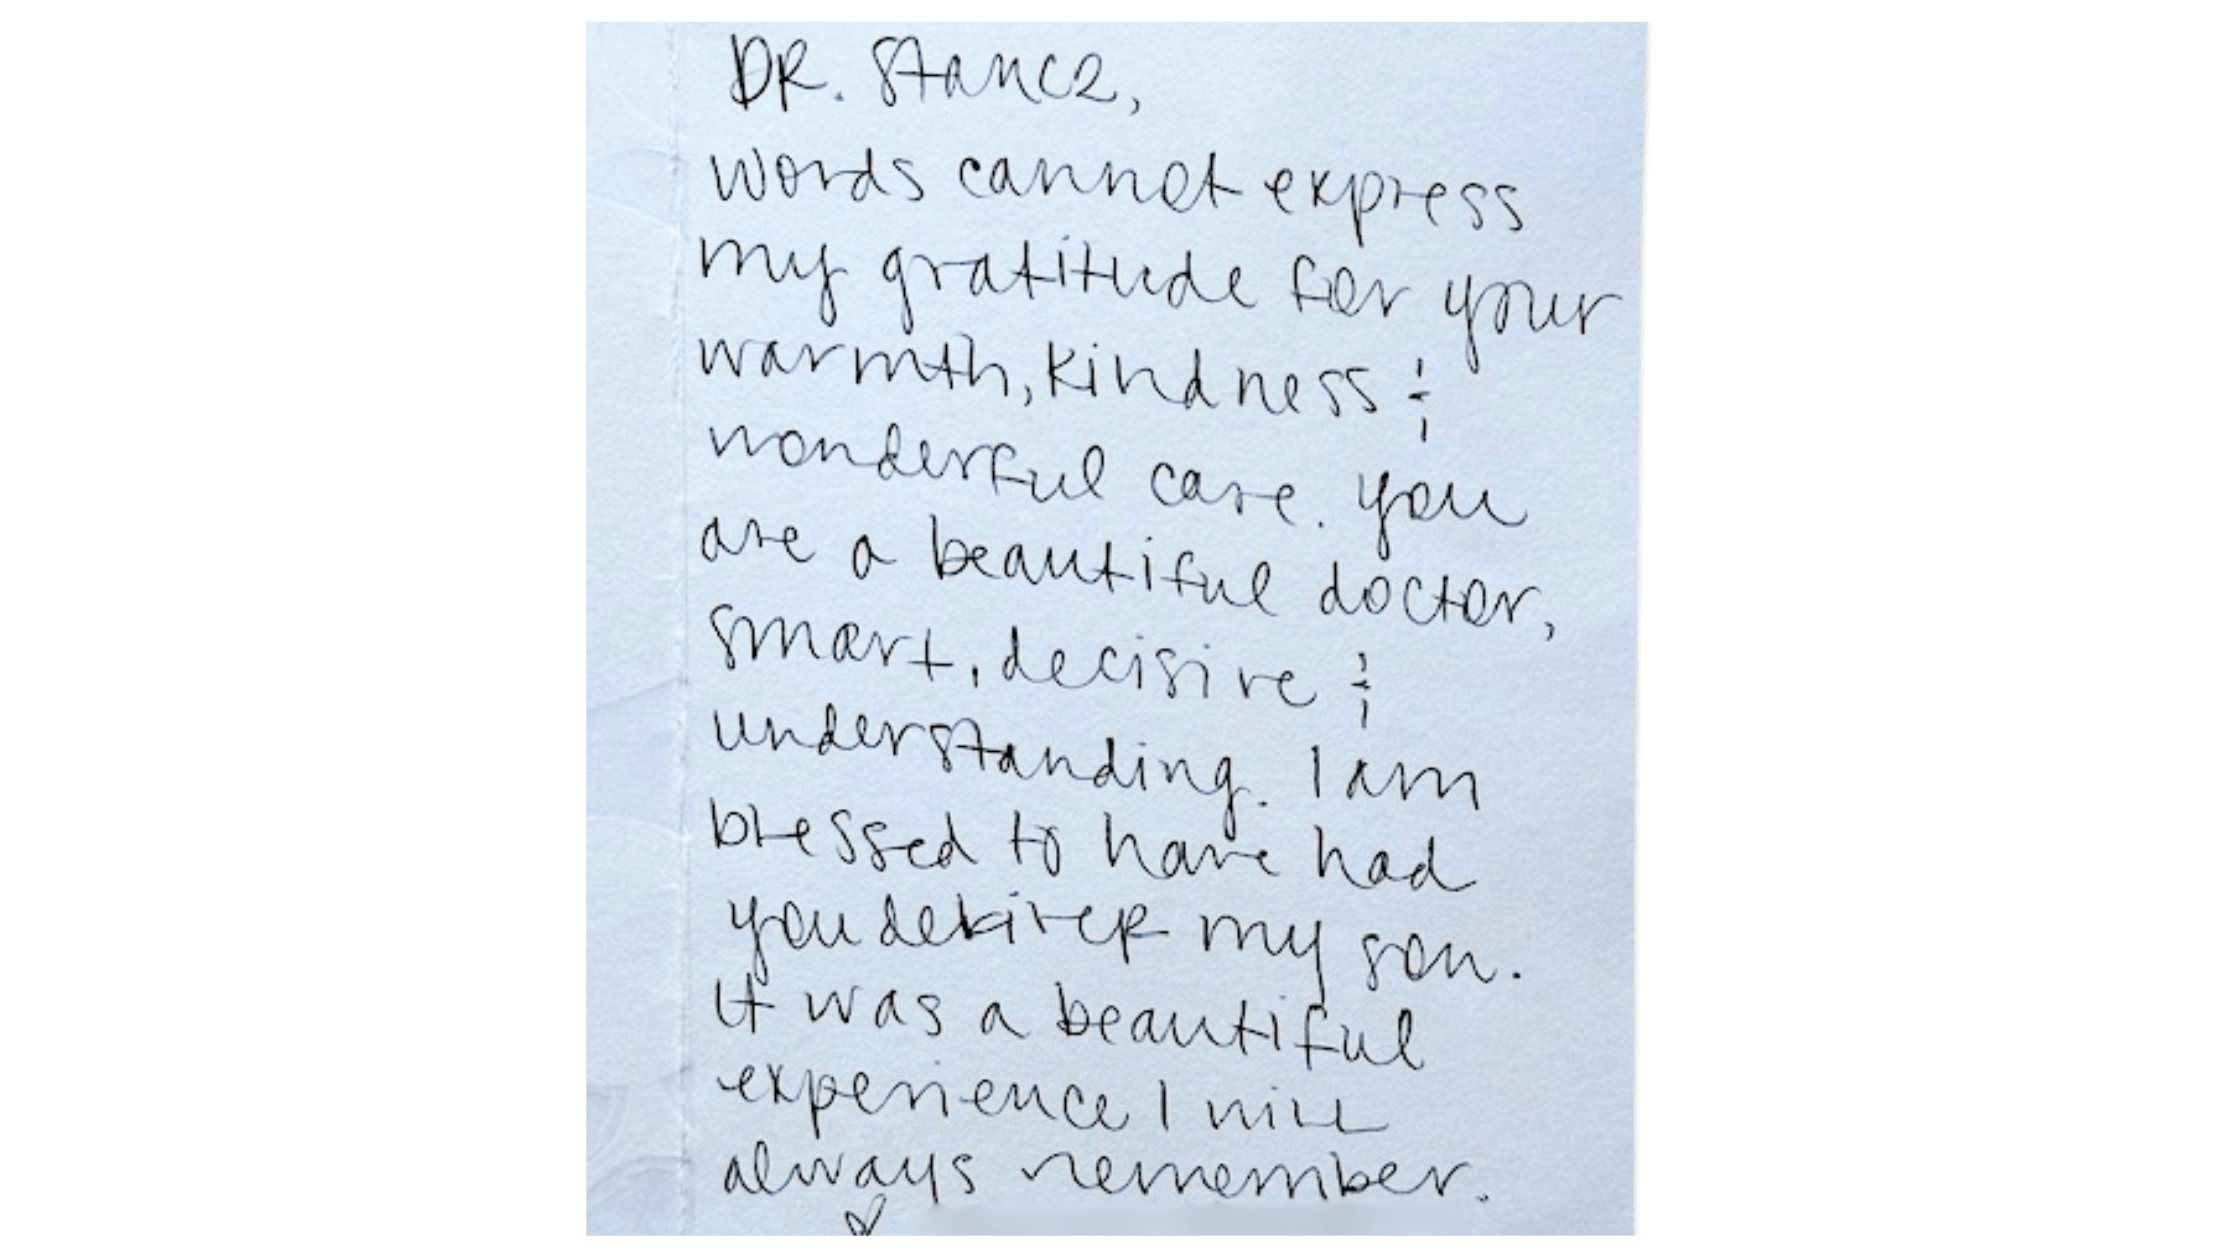 DR. Stancz,
words cannot express
my gratitude for your
warmth, kindness &
wonderful care. you
are a beautiful doctor,
smart, decisive &
understanding. I am
blessed to have had
you deliveR my son.
It was a beautiful
experience I will
always remember.